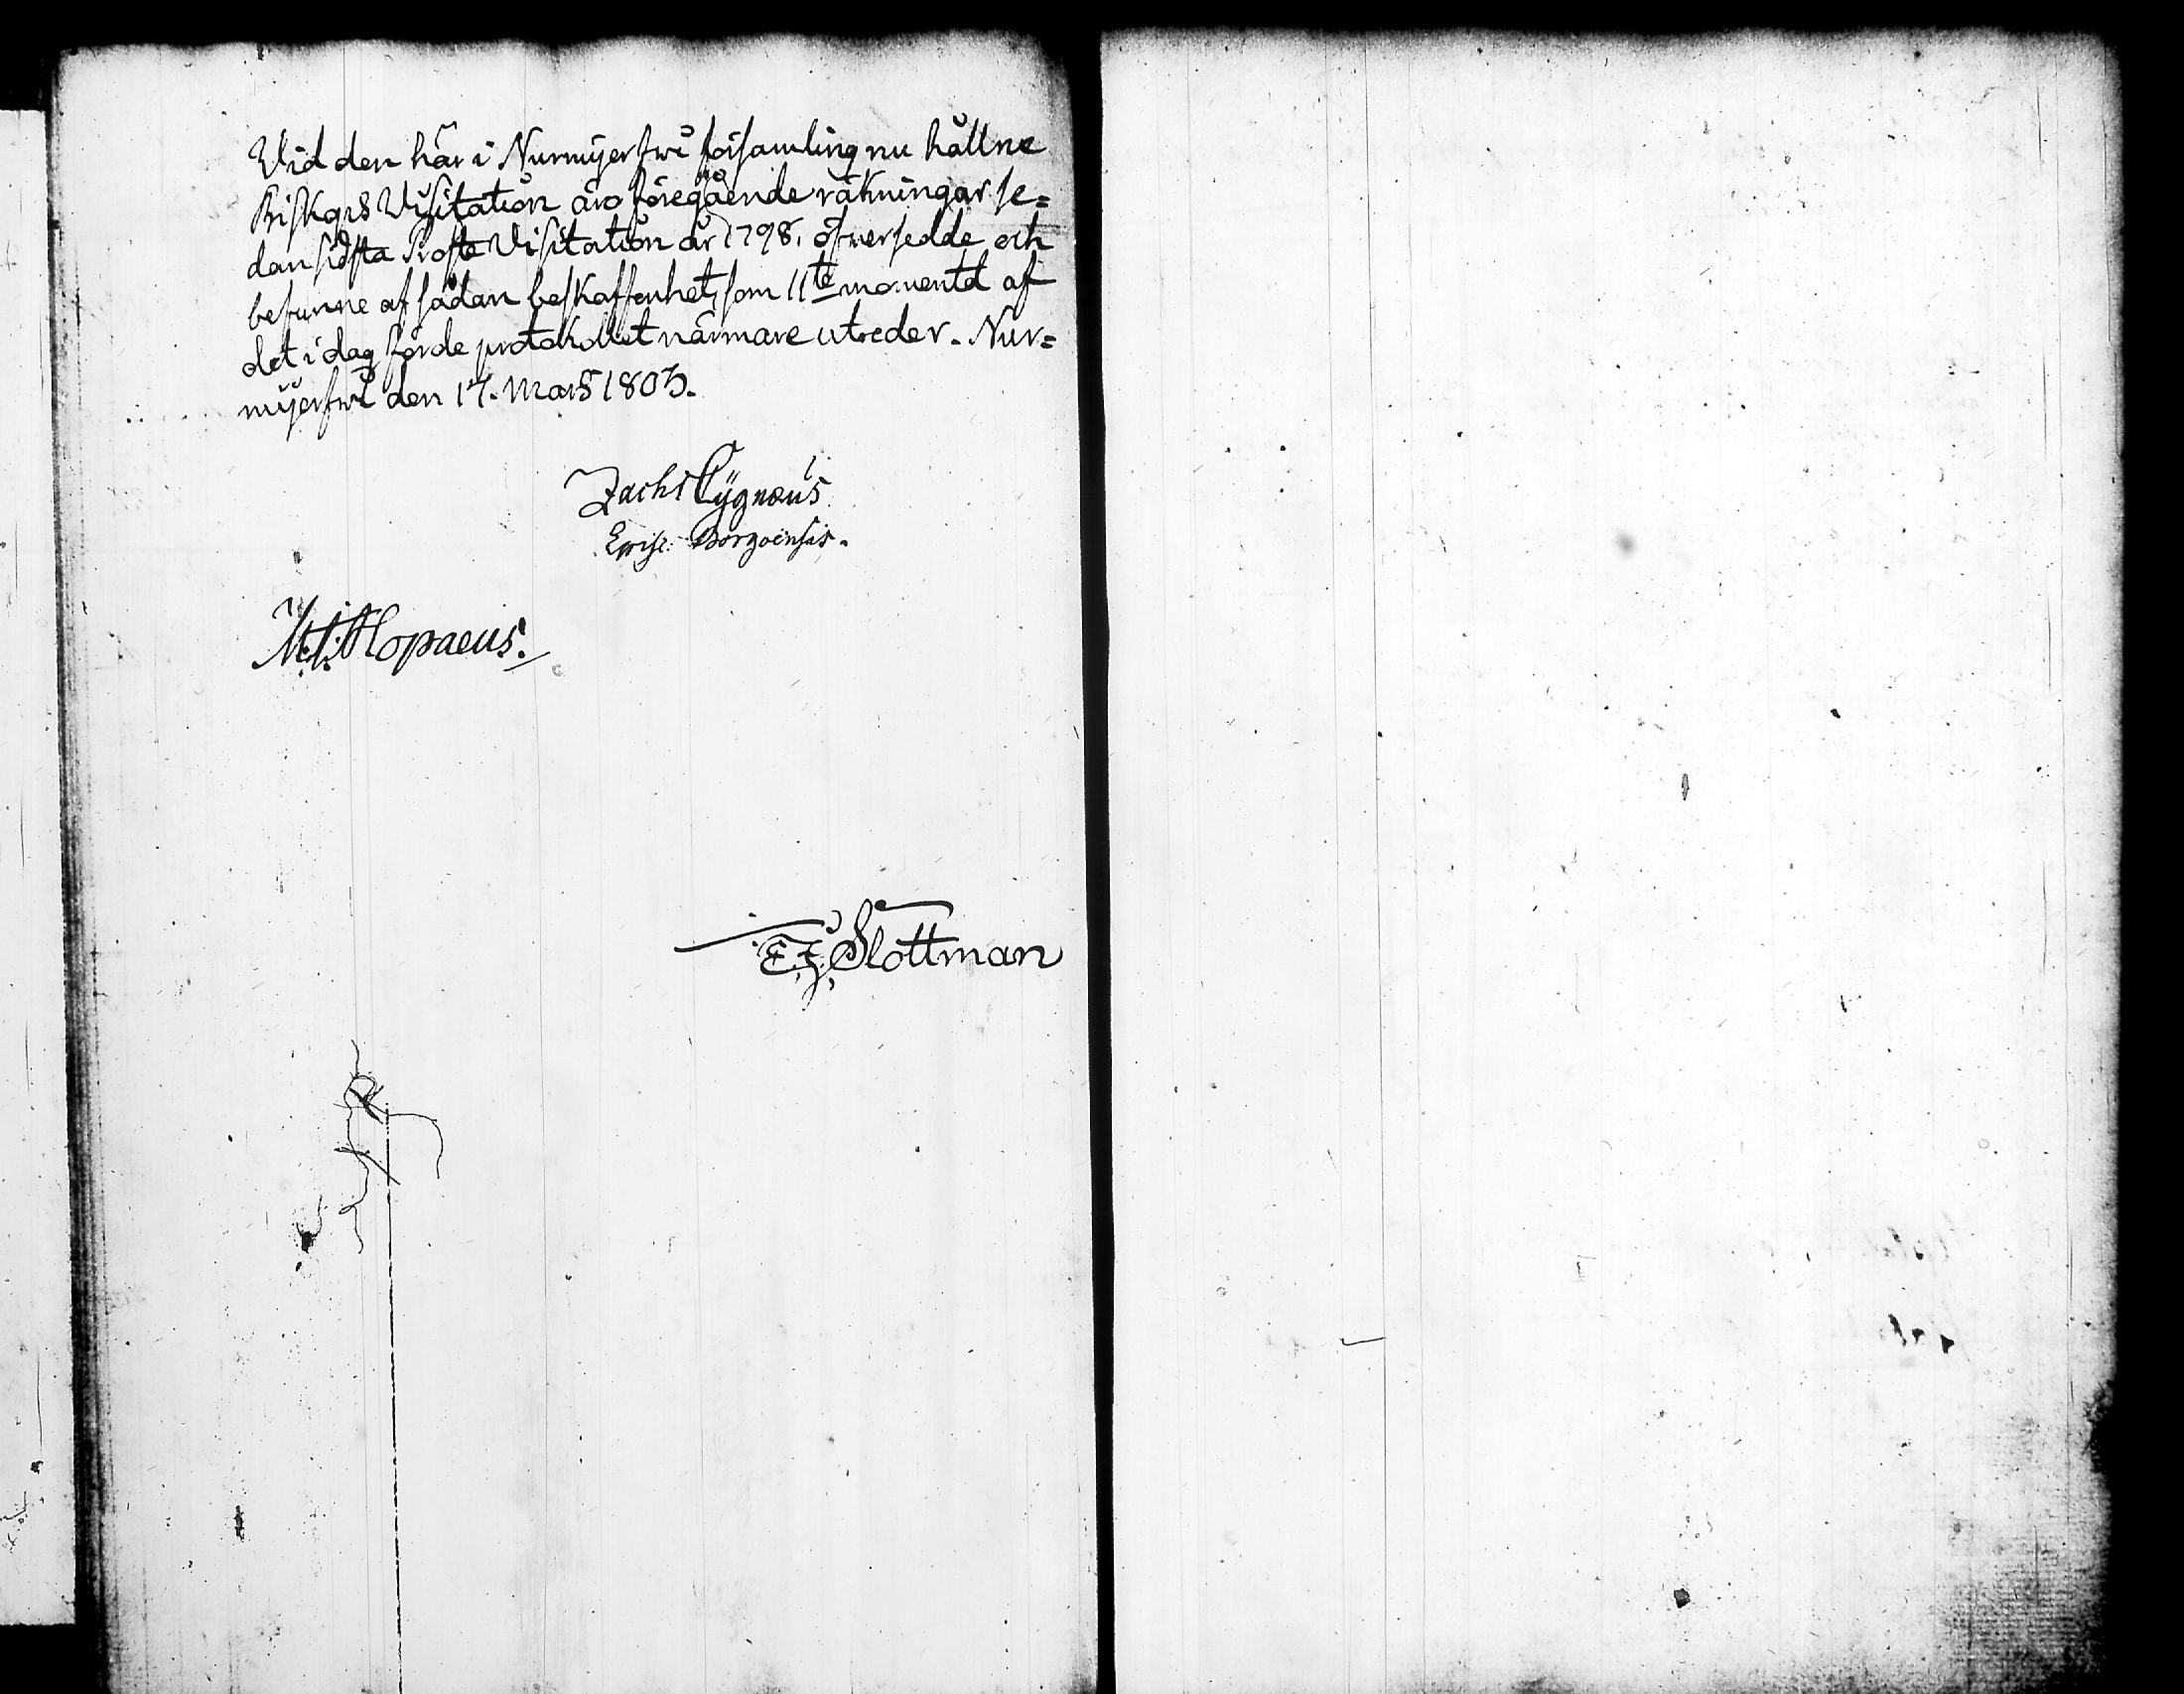 Vid den här i Nurmijerfwi församling nu hållne
Biskops Visitation äro föregående räkningar se=
dan sidsta Prosts Visitation år 1798, öfwersedde och
befunne af sådan beskaffenhet, som 11te momentet af
det i dag förde protokollet närmare utreder. Nur=
mijerfwi den 17. Mars 1803.
Zachs Cygnæus
Episc: Borgoënsis.
M. J. Alopaeus.
E. J. Slottman